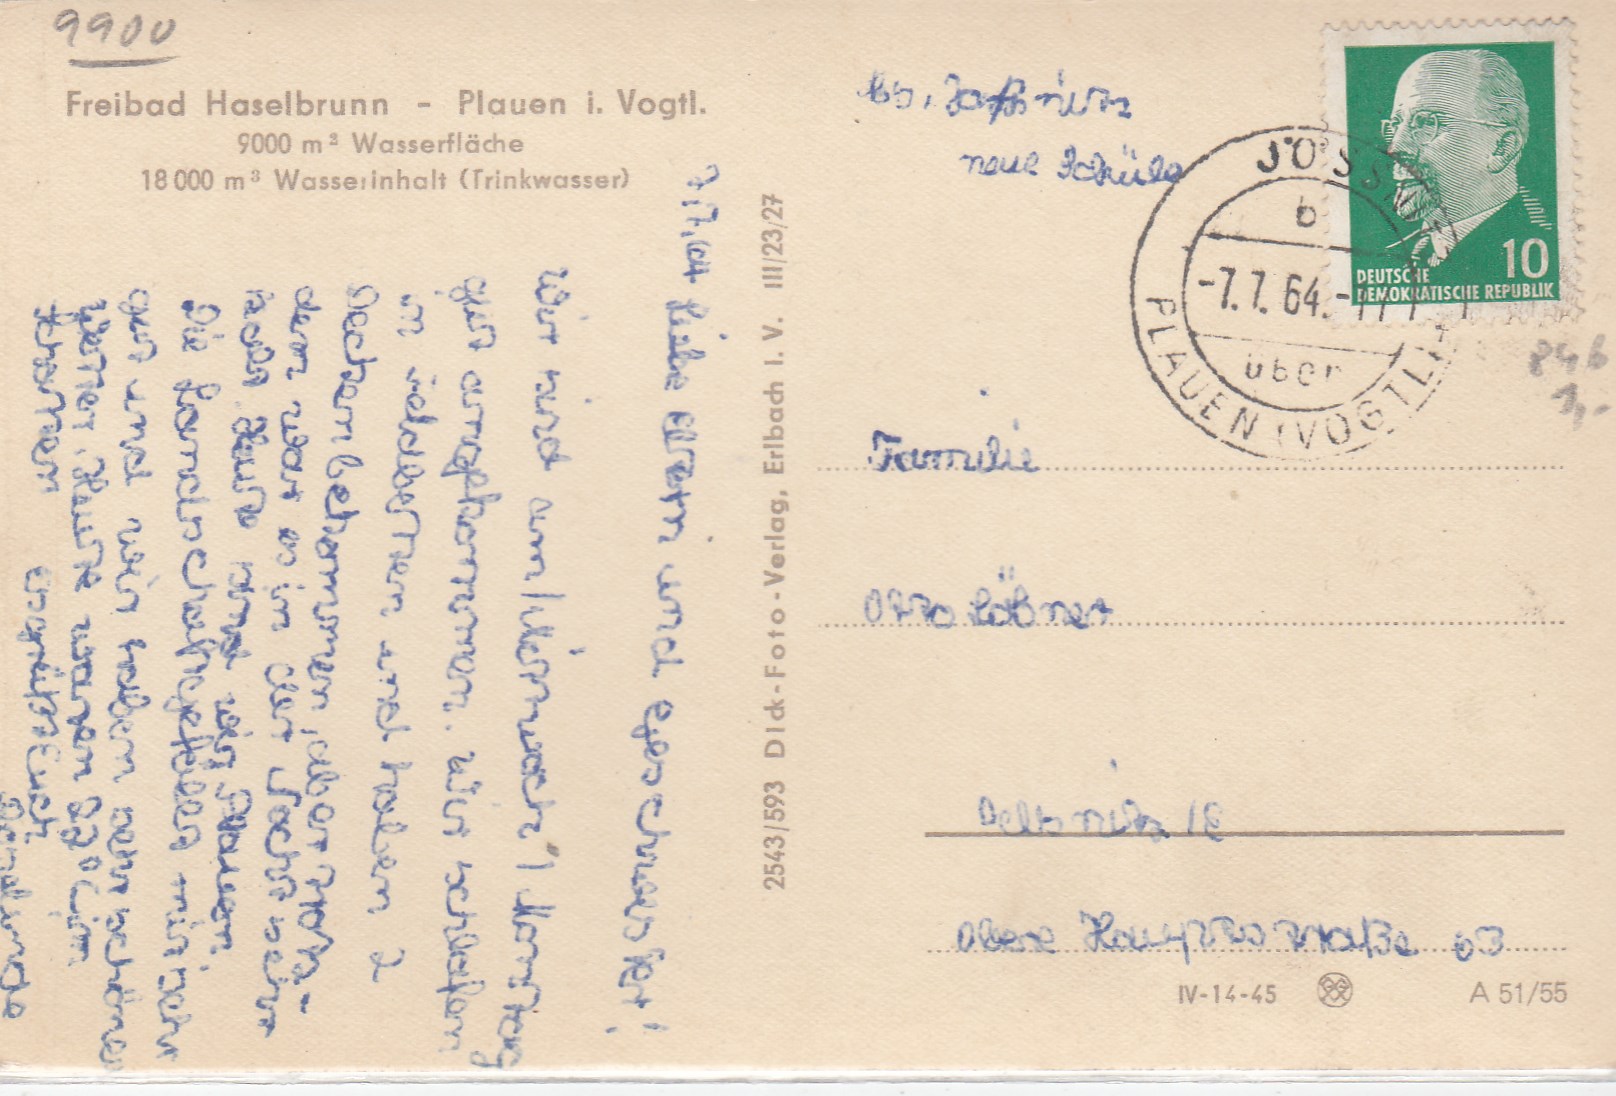 9900
Freibad Haselbrunn - Plauen i. Vogtl.
9000 m² Wasserfläche
18 000 m³ Wasserinhalt (Trinkwasser)
7.7.64 Liebe Eltern und Geschwister!
Wir sind am Vormach Montag
gut angekommen. Wir schlafen
in Betten und haben 2
Decken bekommen, aber trotz-
dem war es in der Nacht sehr
kalt. Heute sind wir Plauen
Die Landschaft gefällt mir sehr
gut und wir haben sehr schönes
Wetter. Heute waren 27° C im
Es grüßt Euch
2543/593 Dick-Foto-Verlag, Erlbach i. V. III/23/27
neue Schule
JÖSSNITZ
b
-7.7.64.-
über
PLAUEN (VOGTL)
DEUTSCHE
DEMOKRATISCHE REPUBLIK
10
846
1,-
Familie
Otto Löbner
Oelsnitz /E
Obere Hauptstraße 63
IV-14-45
A 51/55